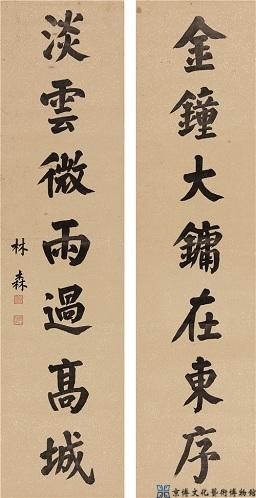 金鐘大鏞在東序
淡雲微雨過高城
林森
京博文化藝術博物館